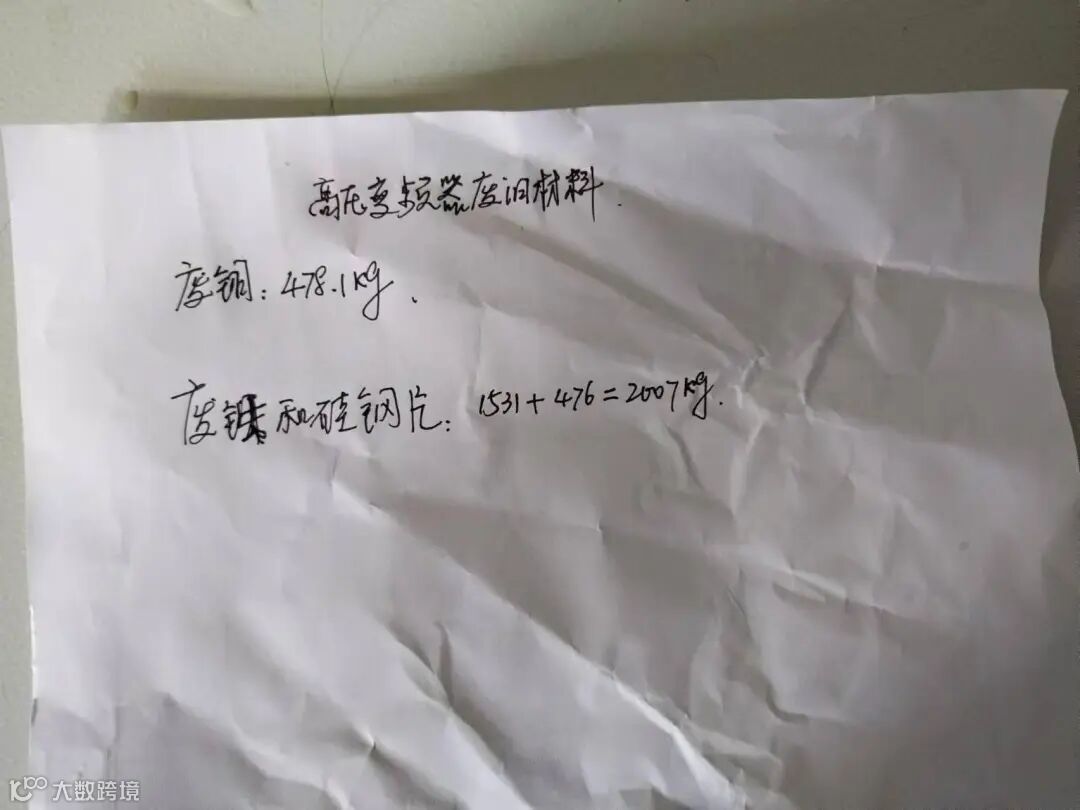 高压变频器废旧材料.
废铜: 478.1kg.
废铁和硅钢片: 1531+476=2007kg.
大数跨境